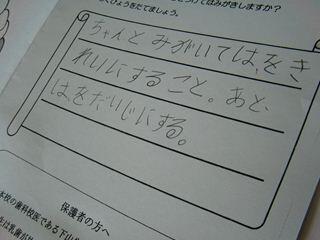 くひょうをたてましょう。
ちゃんと みがいては、をき
れいにすること。あと、
は、をだいじにする。
保護者の方へ
本校の歯科校医である下山